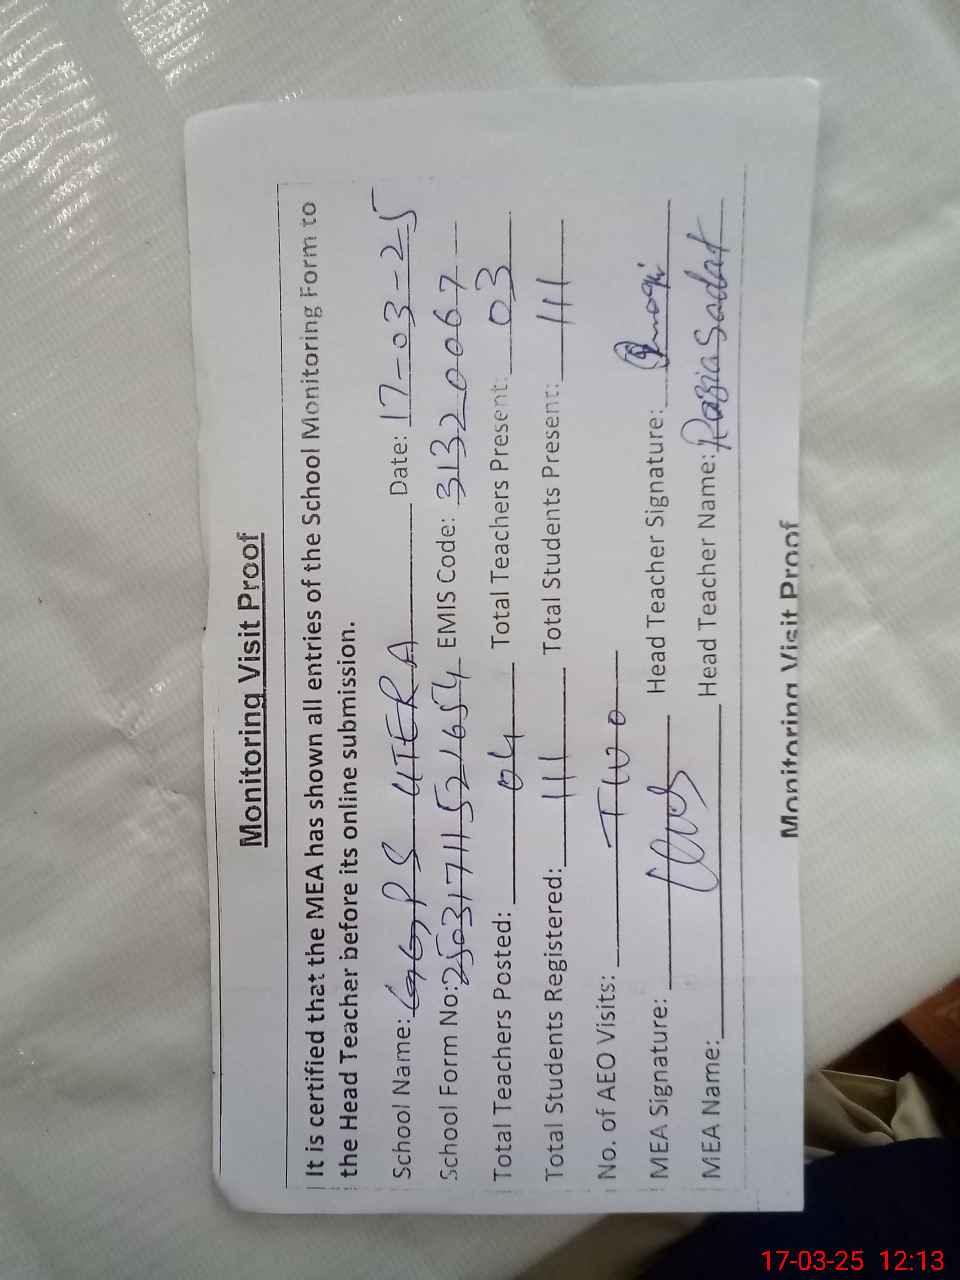 Monitoring Visit Proof
It is certified that the MEA has shown all entries of the School Monitoring Form to
the Head Teacher before its online submission.
School Name: GGPS UTERA Date: 17-03-25
School Form No: 25031711521654 EMIS Code: 31320067
Total Teachers Posted: 04 Total Teachers Present: 03
Total Students Registered: 111 Total Students Present: 111
No. of AEO Visits: TWO
MEA Signature: Head Teacher Signature:
MEA Name: Head Teacher Name: Razia Sadat
Monitoring Visit Proof
17-03-25 12:13